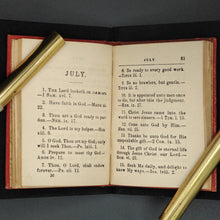 JULY.
1. THE LORD looketh on
—1 SAM. xvi. 7.
2. Have faith in God.—MARK xi.
22.
3. Thou art a God ready to pardon.
4. The Lord is my helper.—HEB.
xiii. 6.
5. O God. Thou art my God; early
will I seek Thee.—Ps. lxiii. 1.
6. Prepare to meet thy God.—
AMOS iv. 12.
7. Thou, O Lord, shalt endure
forever.—Ps. cii. 12.
JULY.
8. Be ready to every good work.
—TITUS iii. 1.
9. Be no brawlers, but gentle.—
TITUS iii. 2.
10. It is appointed unto men once
to die, but after this the judgment.
11. Christ Jesus came into the
world to save sinners.—1 TIM. i. 15.
12. Come unto God by Him.—
HEB. vii. 25.
13. Thanks be unto God for His
unspeakable gift.—2 COR. ix. 15.
14. The gift of God is eternal life
through Jesus Christ our Lord.—
15. Seek me daily, and delight to
know My ways.—ISA. lviii. 2.